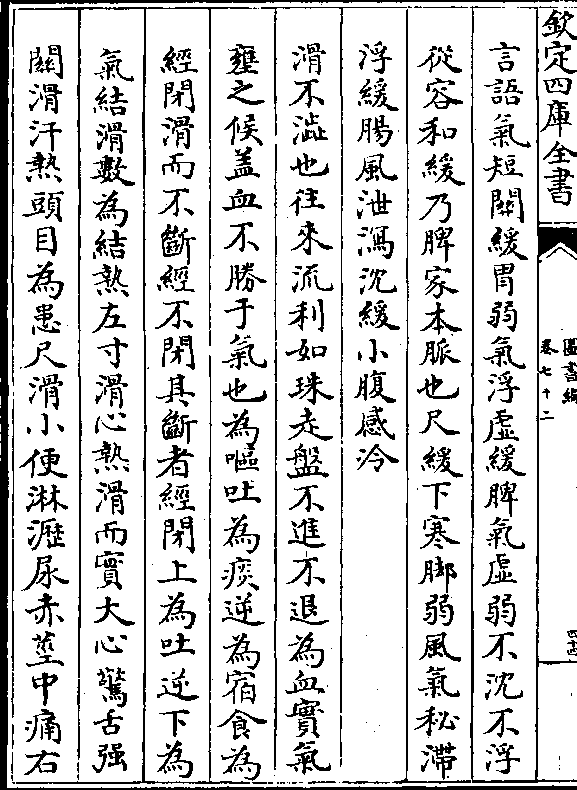 欽定四庫全書
圖書編
卷七十二
四十四
言語氣短關緩胃弱氣浮虛緩脾氣虛弱不沈不浮
從容和緩乃脾家本脈也尺緩下寒脚弱風氣秘滯
浮緩腸風泄瀉沈緩小腹感冷
滑不澁也往來流利如珠走盤不進不退為血實氣
壅之候盖血不勝于氣也為嘔吐為痰逆為宿食為
經閉滑而不斷經不閉其斷者經閉上為吐逆下為
氣結滑數為結熱左寸滑心熱滑而實大心驚舌强
關滑汗熱頭目為患尺滑小便淋瀝尿赤莖中痛右